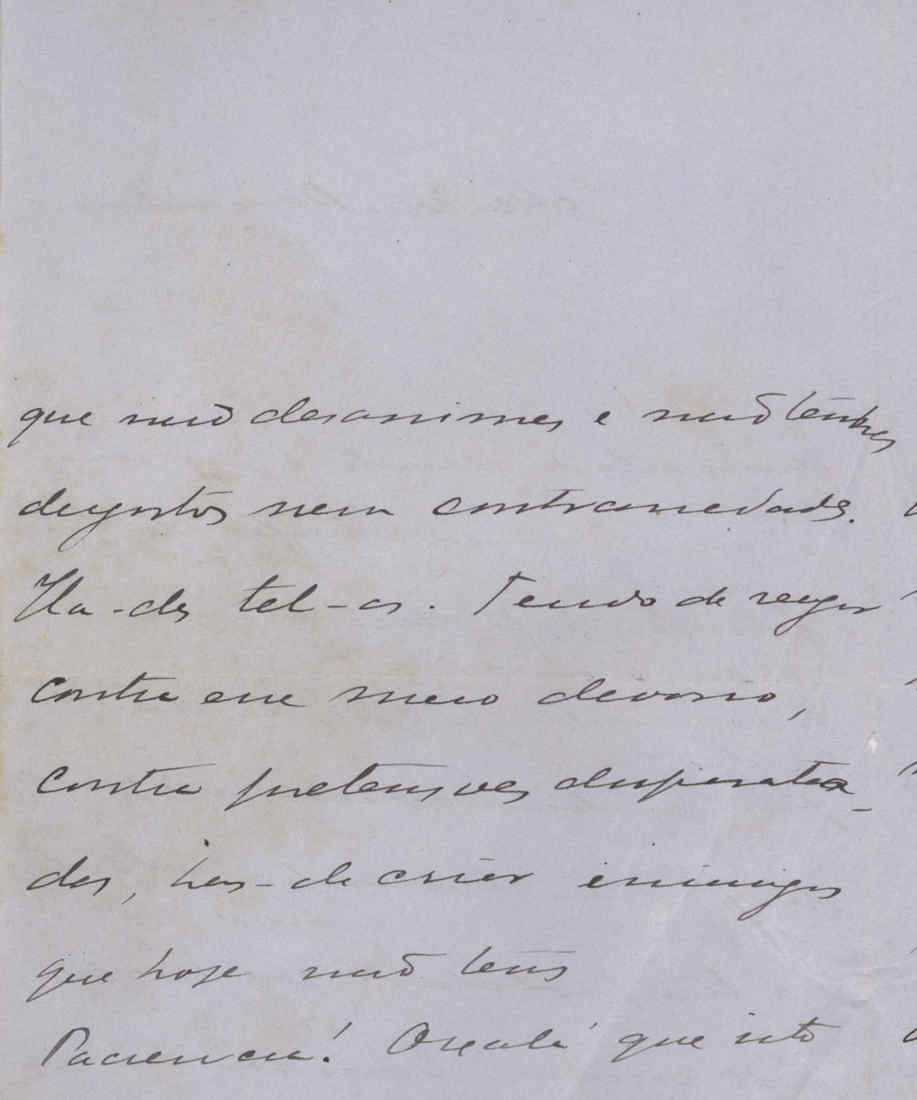 que não desanimes e não tenhas
desgostos nem contrariedades.
Ha-des tel-os. Tendo de reagir
contra esse meio devasso,
contra pretensões disparata-
das, has-de criar inimigos
que hoje não tens
Paciencia! Oxalá que isto